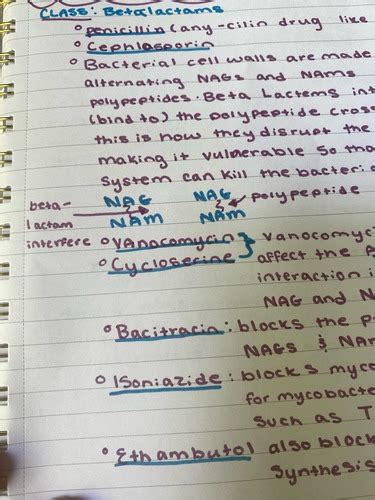 CLASS: Betalactams
penicillin (any -cilin drug like
Cephlasporin
Bacterial cell walls are made
alternating NAGs and NAMs
polypeptides. Beta Lactems int
(bind to) the polypeptide cross
this is how they disrupt the
making it vulnerable so tha
system can kill the bacteri
beta- NAG NAG polypeptide
lactam NAM NAM
interfere Vanacomycin } Vanacomyci
Cycloserine affect the P
interaction i
NAG and N
Bacitracin: blocks the p
NAGS & NAM
ISoniazide: blocks myco
for mycobacte
such as T
Ethambutol also block
synthesis